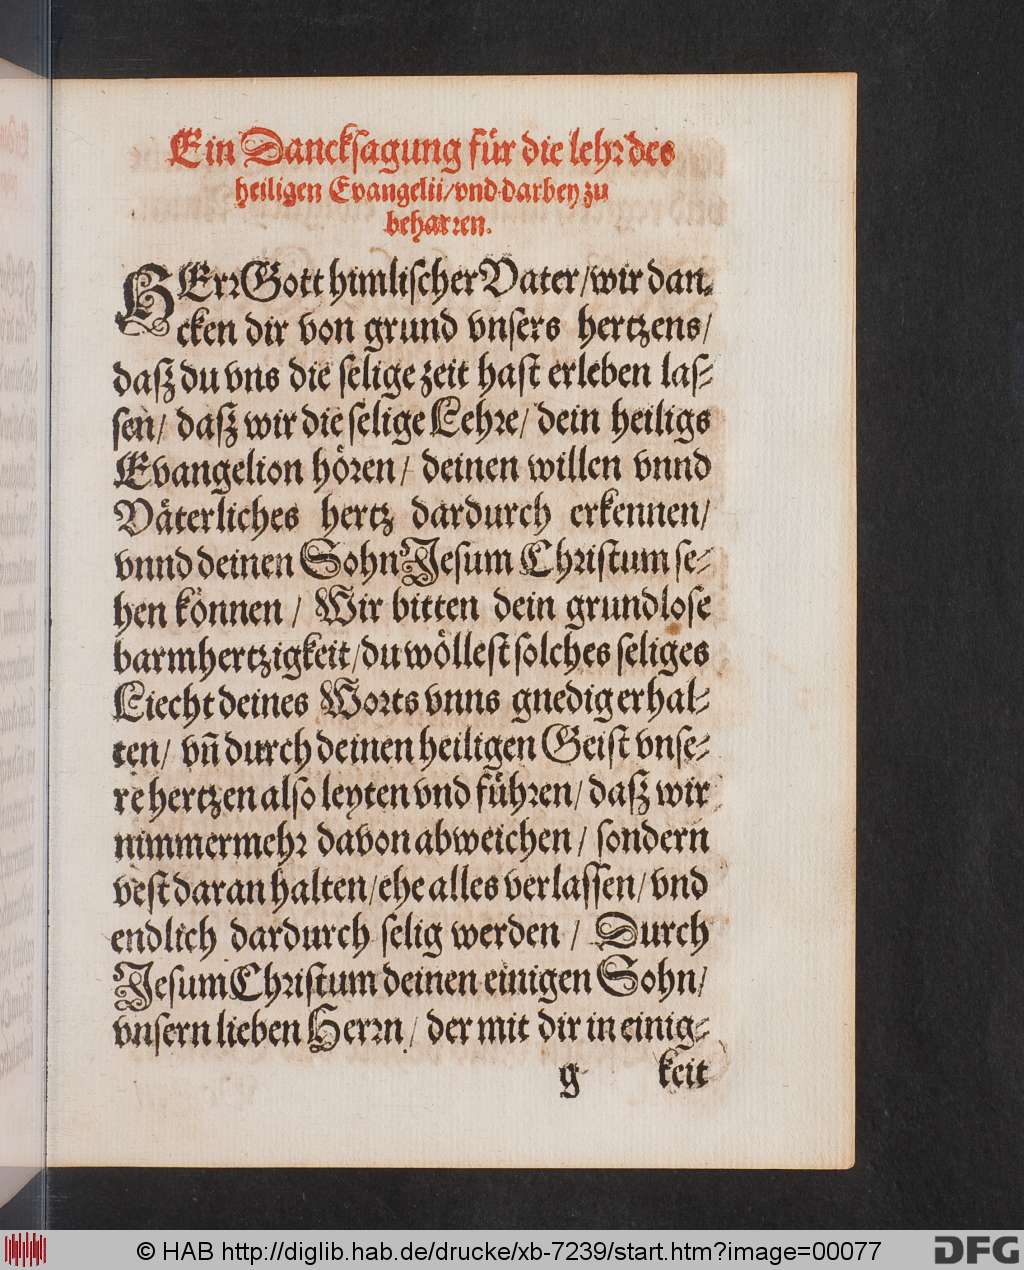 Ein Dancksagung für die lehr des
heiligen Evangelii/ vnd darbey zu
beharren.
HErr Gott himlischer Vater/ wir dan-
cken dir von grund vnsers hertzens/
dasz du vns die selige zeit hast erleben las-
sen/ dasz wir die selige Lehre/ dein heiligs
Evangelion hören/ deinen willen vnnd
Väterliches hertz dardurch erkennen/
vnnd deinen Sohn Jesum Christum se-
hen können / Wir bitten dein grundlose
barmhertzigkeit/ du wöllest solches seliges
Liecht deines Worts vnns gnedig erhal-
ten/ vñ durch deinen heiligen Geist vnse-
re hertzen also leyten vnd führen/ dasz wir
nimmermehr davon abweichen/ sondern
vest daran halten/ ehe alles verlassen/ vnd
endlich dardurch selig werden / Durch
Jesum Christum deinen einigen Sohn/
vnsern lieben Herrn/ der mit dir in einig-
g keit
© HAB http://diglib.hab.de/drucke/xb-7239/start.htm?image=00077
DFG